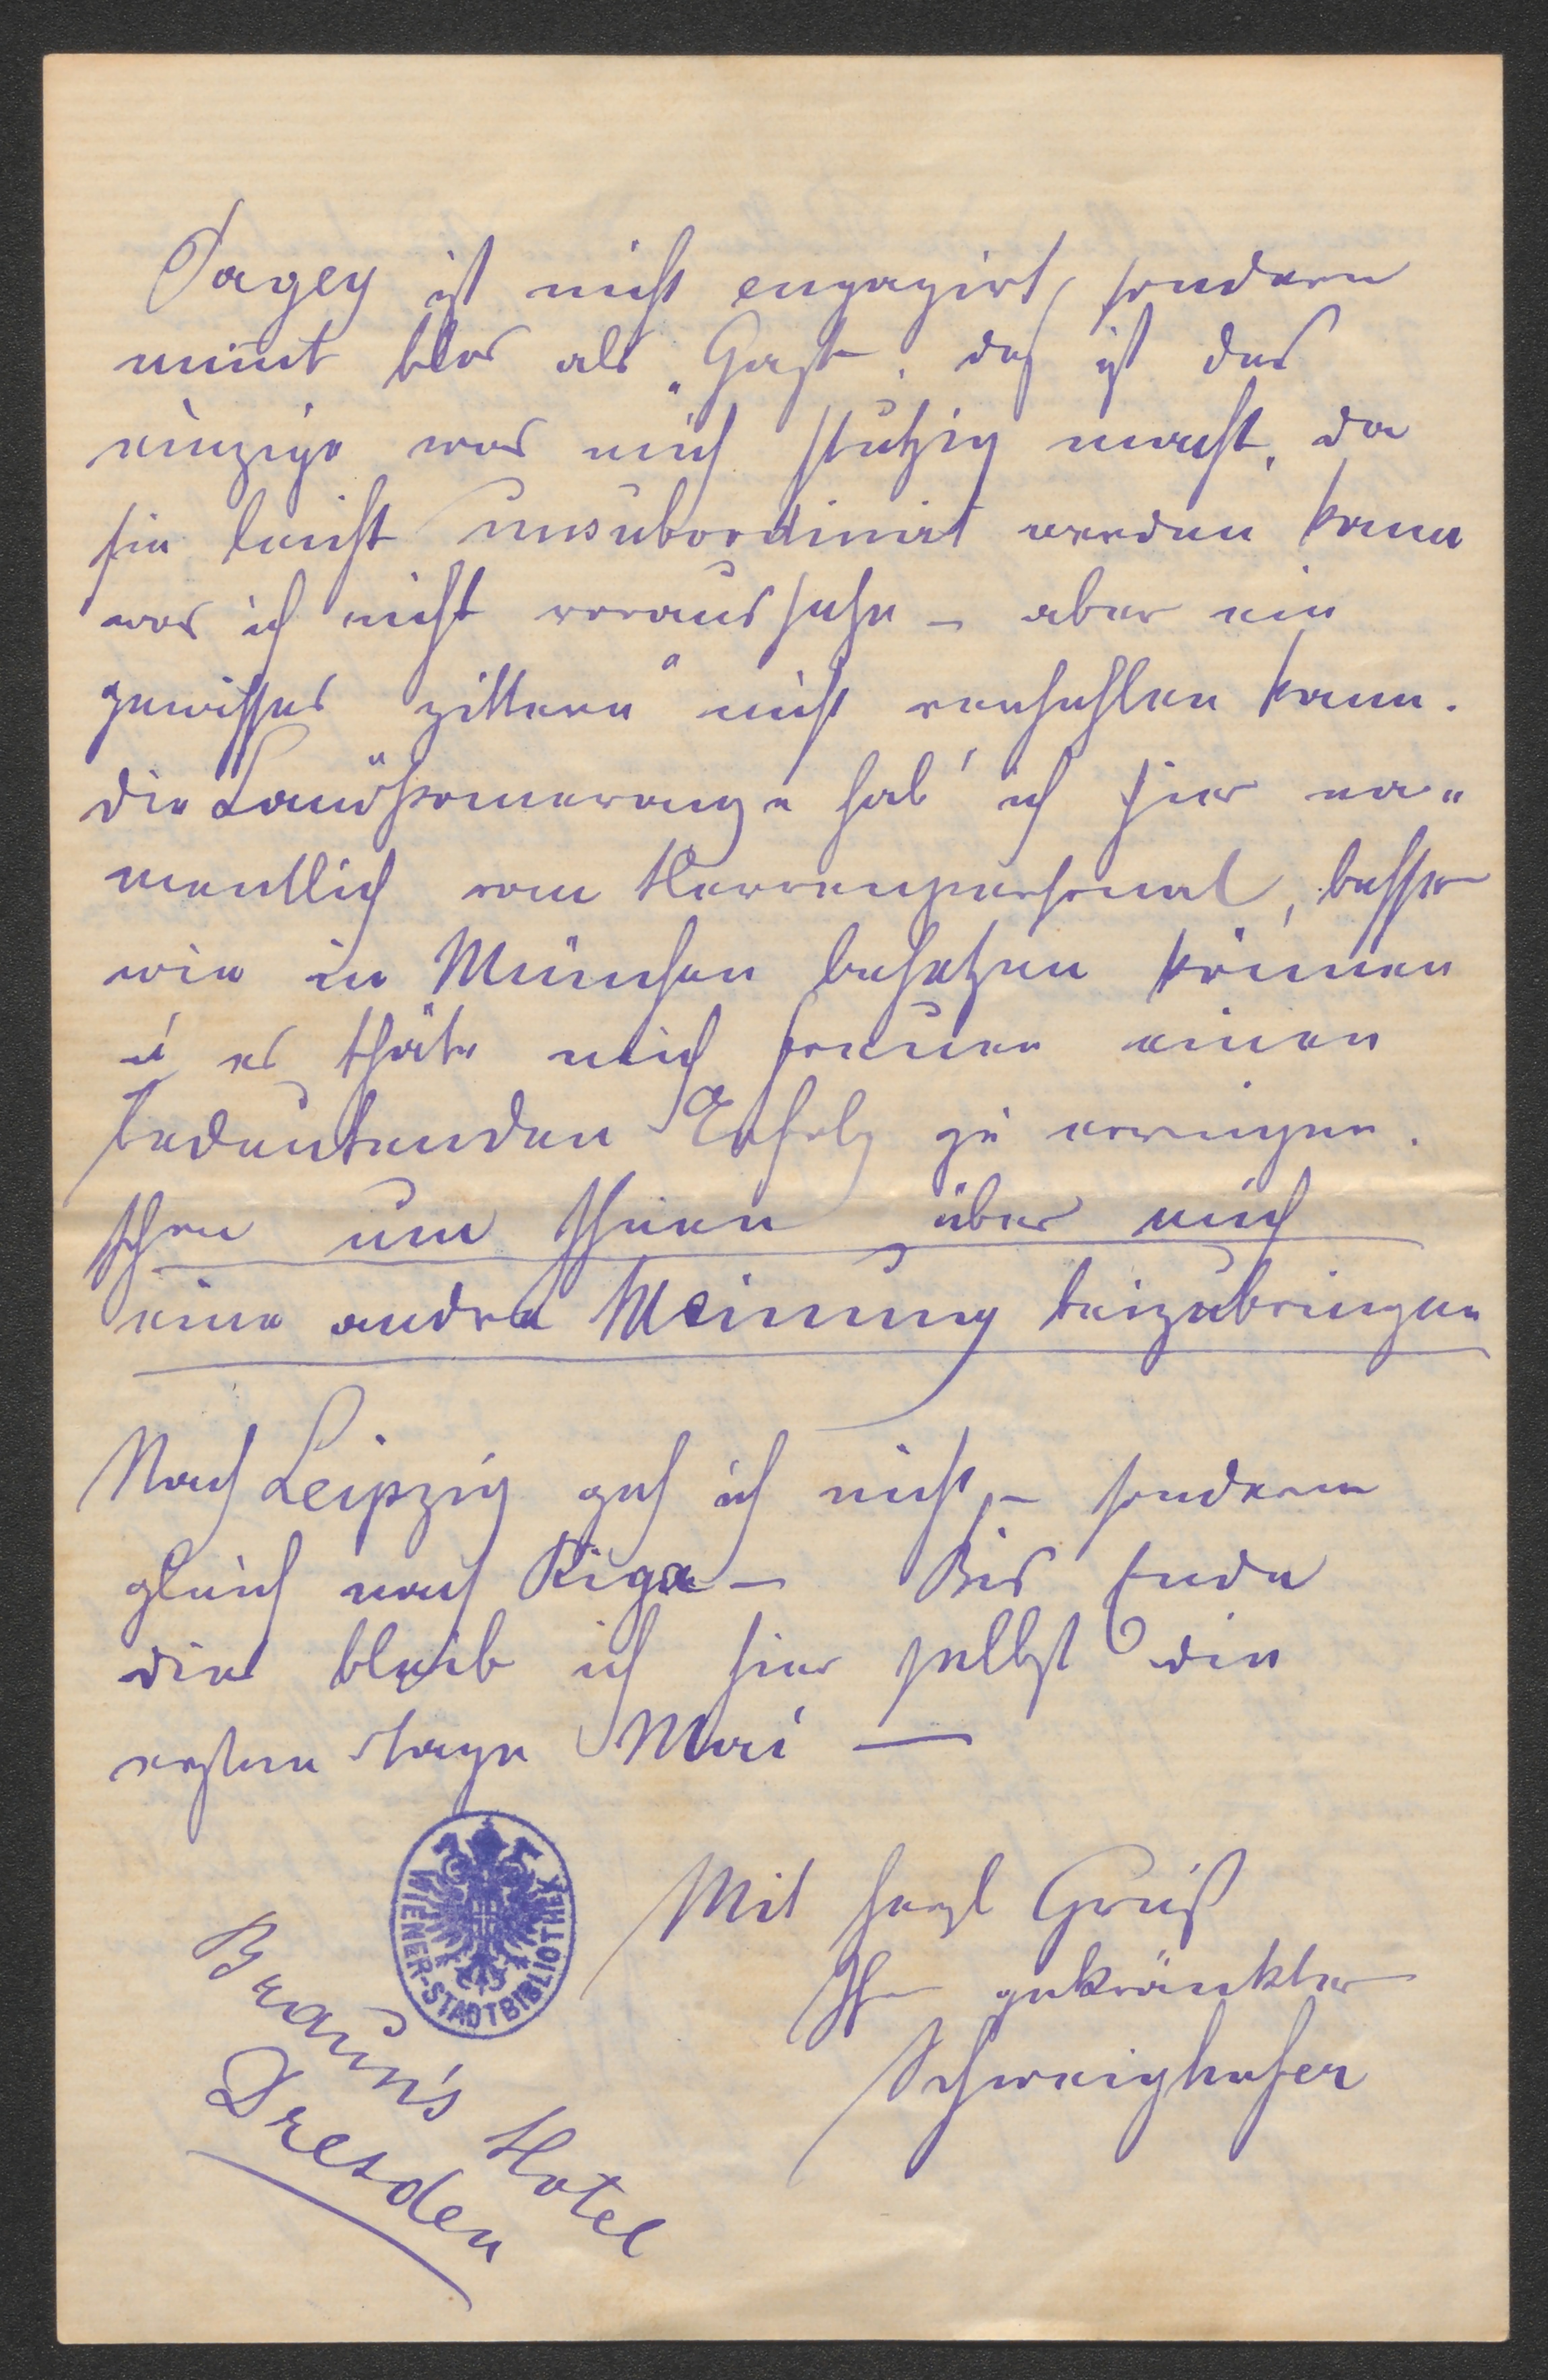 Pagey ist nicht engagirt, sondern
mimt blos als „Gast“. das ist das
einzige was mich stutzig macht, da
sie leicht unsubordinirt werden kann
was ich nicht voraussehe – aber ein
gewisses „zittern“ nicht verhehlen kann.
die Landpomeranze hab' ich hier na„
mentlich vom Herrenpersonal, besser
wie in München besetzen können
u es thäte mich freuen einen
bedeutenden Erfolg zu erringen.
schon um Ihnen über mich
eine andre Meinung beizubringen
Nach Leipzig geh ich nicht, – sondern
gleich nach Riga – Bis Ende
dies bleib ich hier selbst die
ersten Tage Mai —
Mit herzl Gruß
Ihr gekränkter
Schweighofer
Braun's Hotel
Dresden
WIENER-STADTBIBLIOTHEK